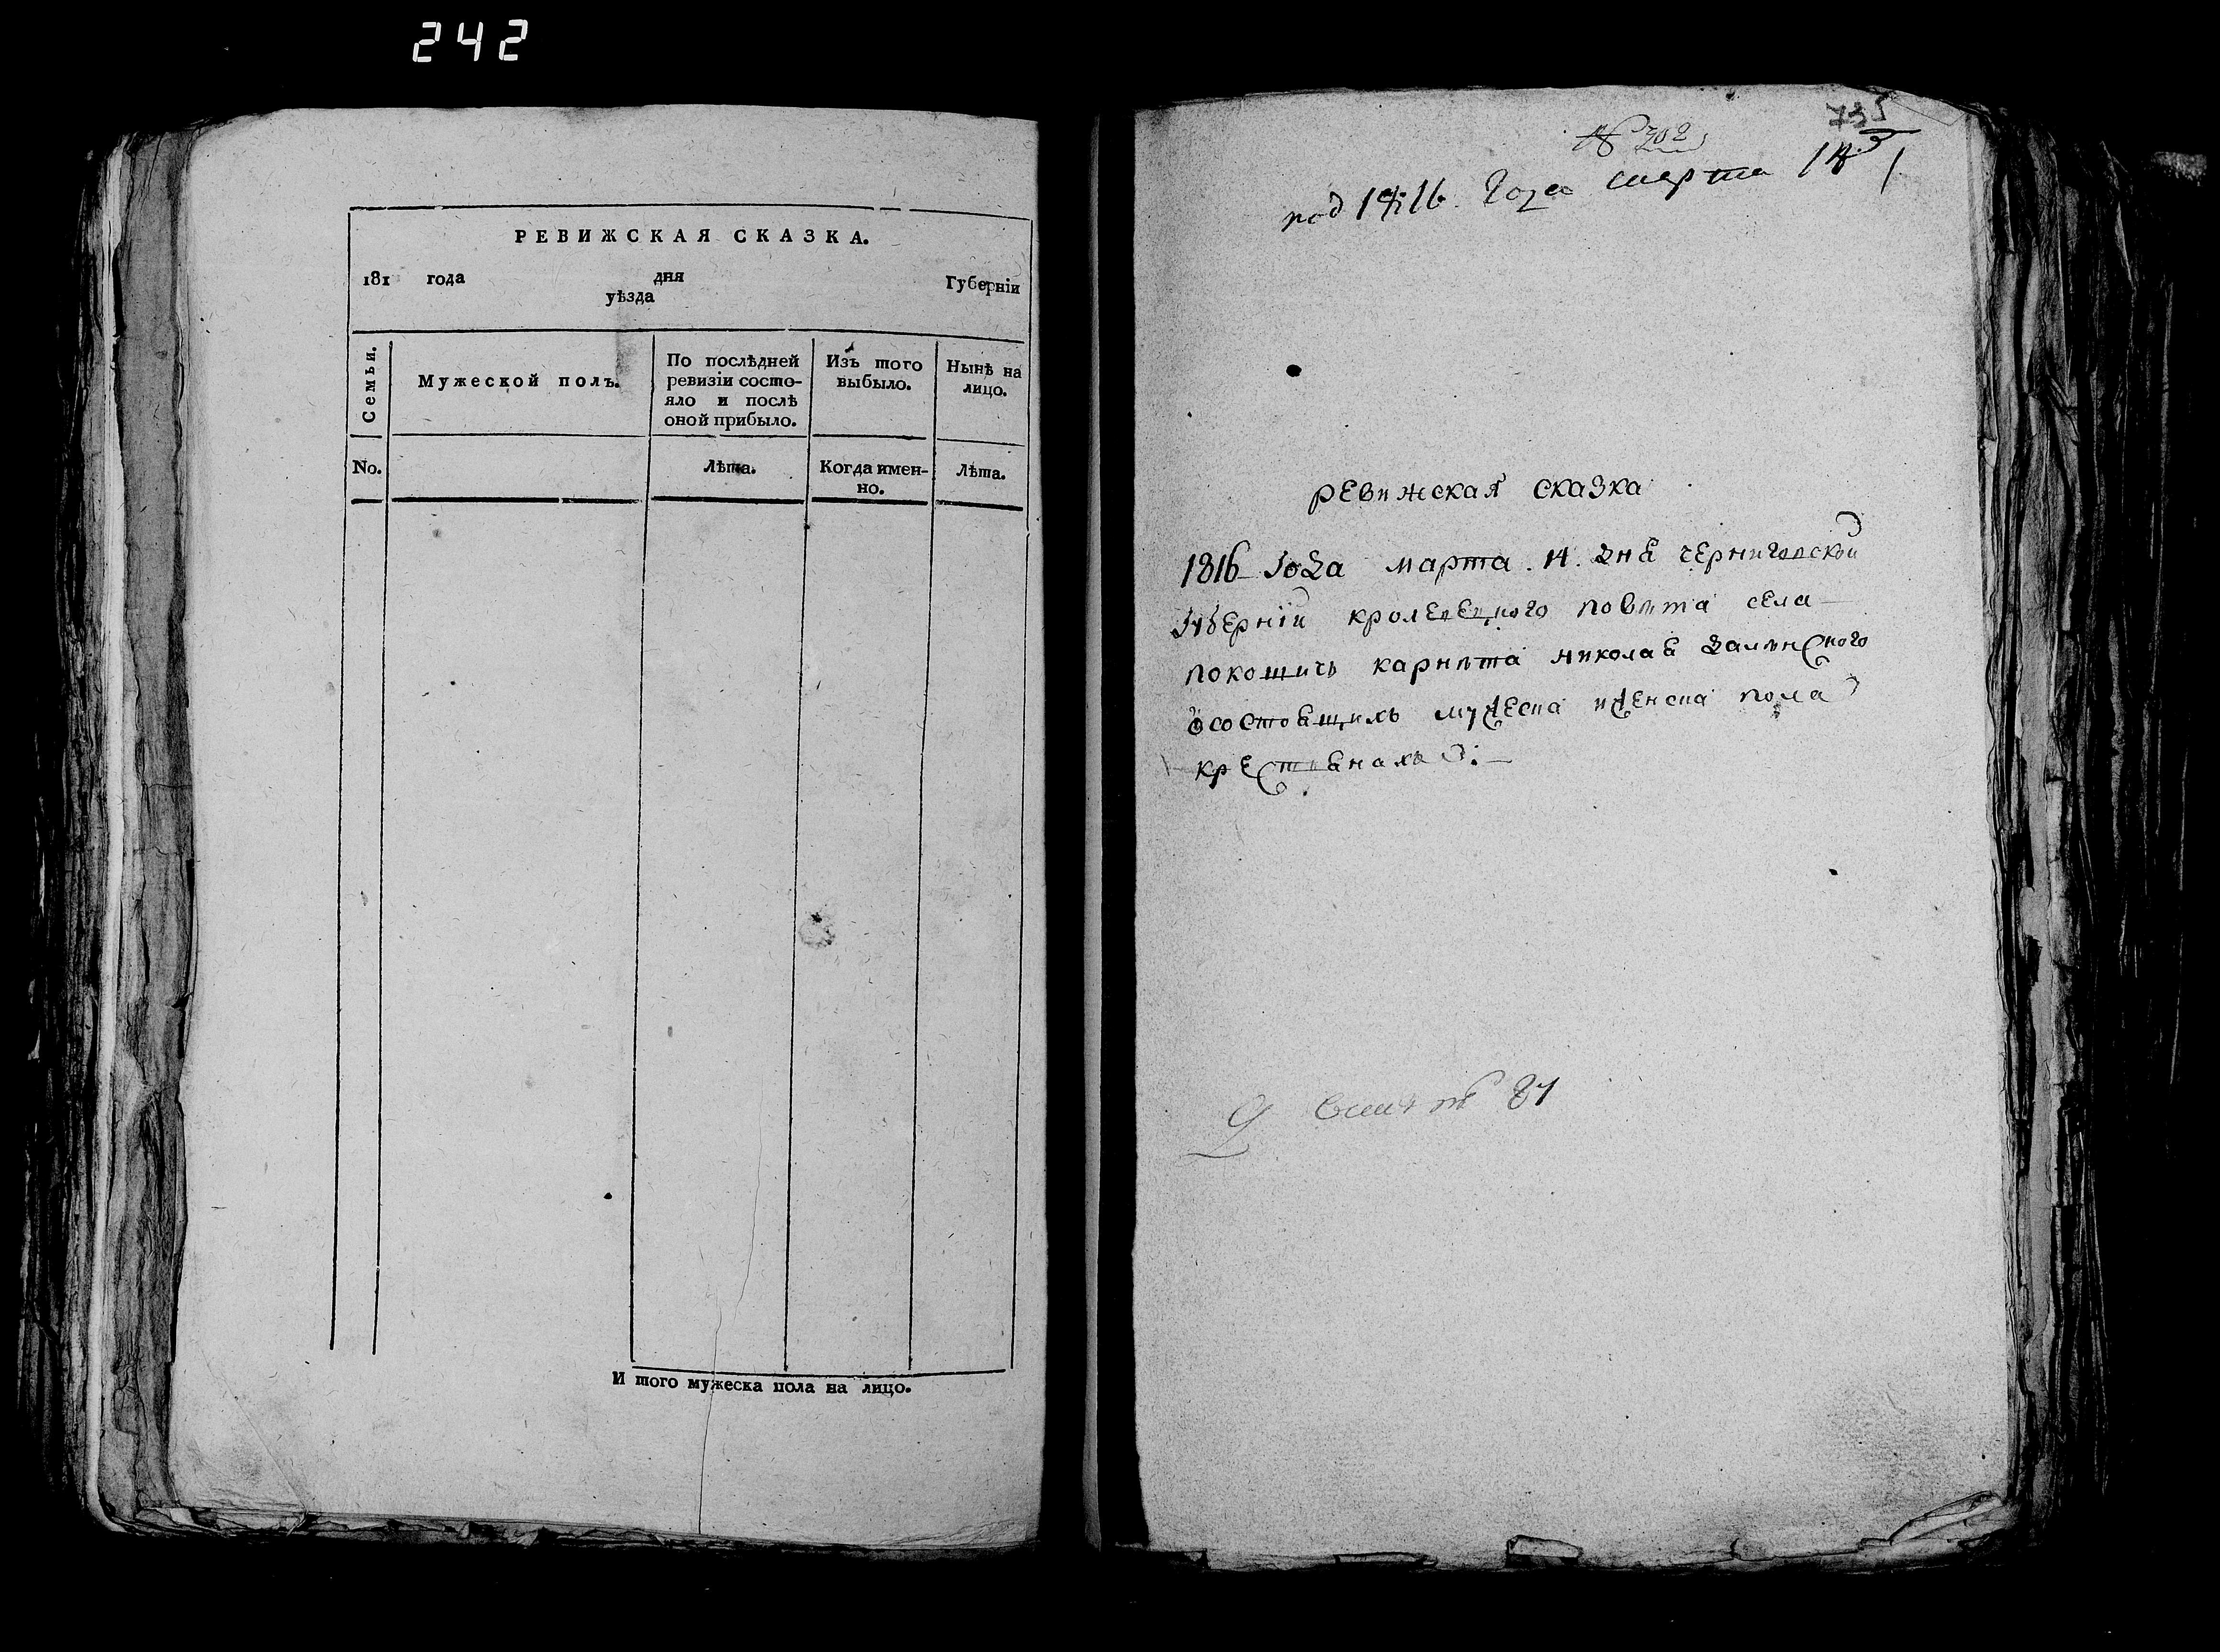 242
РЕВИЖСКАЯ СКАЗКА.
181 года дня Губернїи
уѣзда
Семьи.
Мужеской полъ.
По послѣдней
ревизїи состо-
яло и послѣ
оной прибыло.
Изъ того
выбыло.
Нынѣ на
лицо.
No.
Лѣта.
Когда имен-
но.
Лѣта.
И того мужеска пола на лицо.
735
№ 702
1816 года марта 14
ревижская сказка
1816 года марта 14 дня черниговской
губернїи кролевецкого повѣта села
покошичъ карнета николая
о состоящихъ мужеска и женска пола
крестьянахъ
87